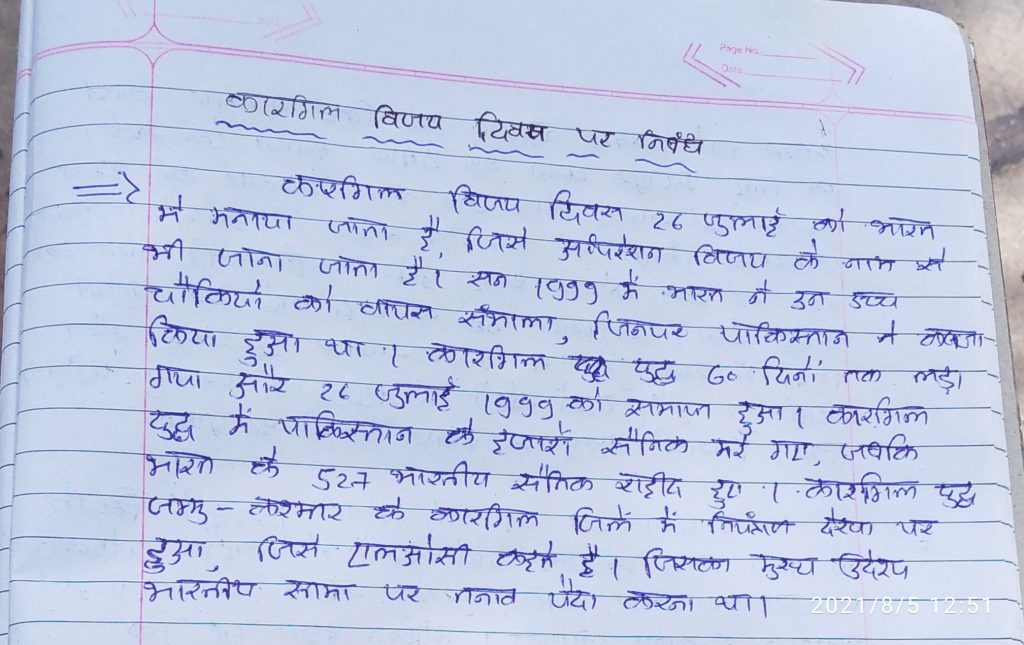 Page No.
Date
कारगिल विजय दिवस पर निबंध
=> कारगिल विजय दिवस 26 जुलाई को भारत
में मनाया जाता है, जिसे ऑपरेशन विजय के नाम से
भी जाना जाता है। सन 1999 में भारत ने उन उच्च
चौकियों को वापस संभाला, जिनपर पाकिस्तान ने कब्जा
किया हुआ था। कारगिल युद्ध 60 दिनों तक लड़ा
गया और 26 जुलाई 1999 को समाप्त हुआ। कारगिल
युद्ध में पाकिस्तान के हजारों सैनिक मरे गए, जबकि
भारत के 527 भारतीय सैनिक शहीद हुए। कारगिल युद्ध
जम्मु-कश्मीर के कारगिल जिले में नियंत्रण रेखा पर
हुआ, जिसे एलओसी कहते है। जिसका मुख्य उदेश्य
भारतीय सीमा पर तनाव पैदा करना था।
2021/8/5 12:51